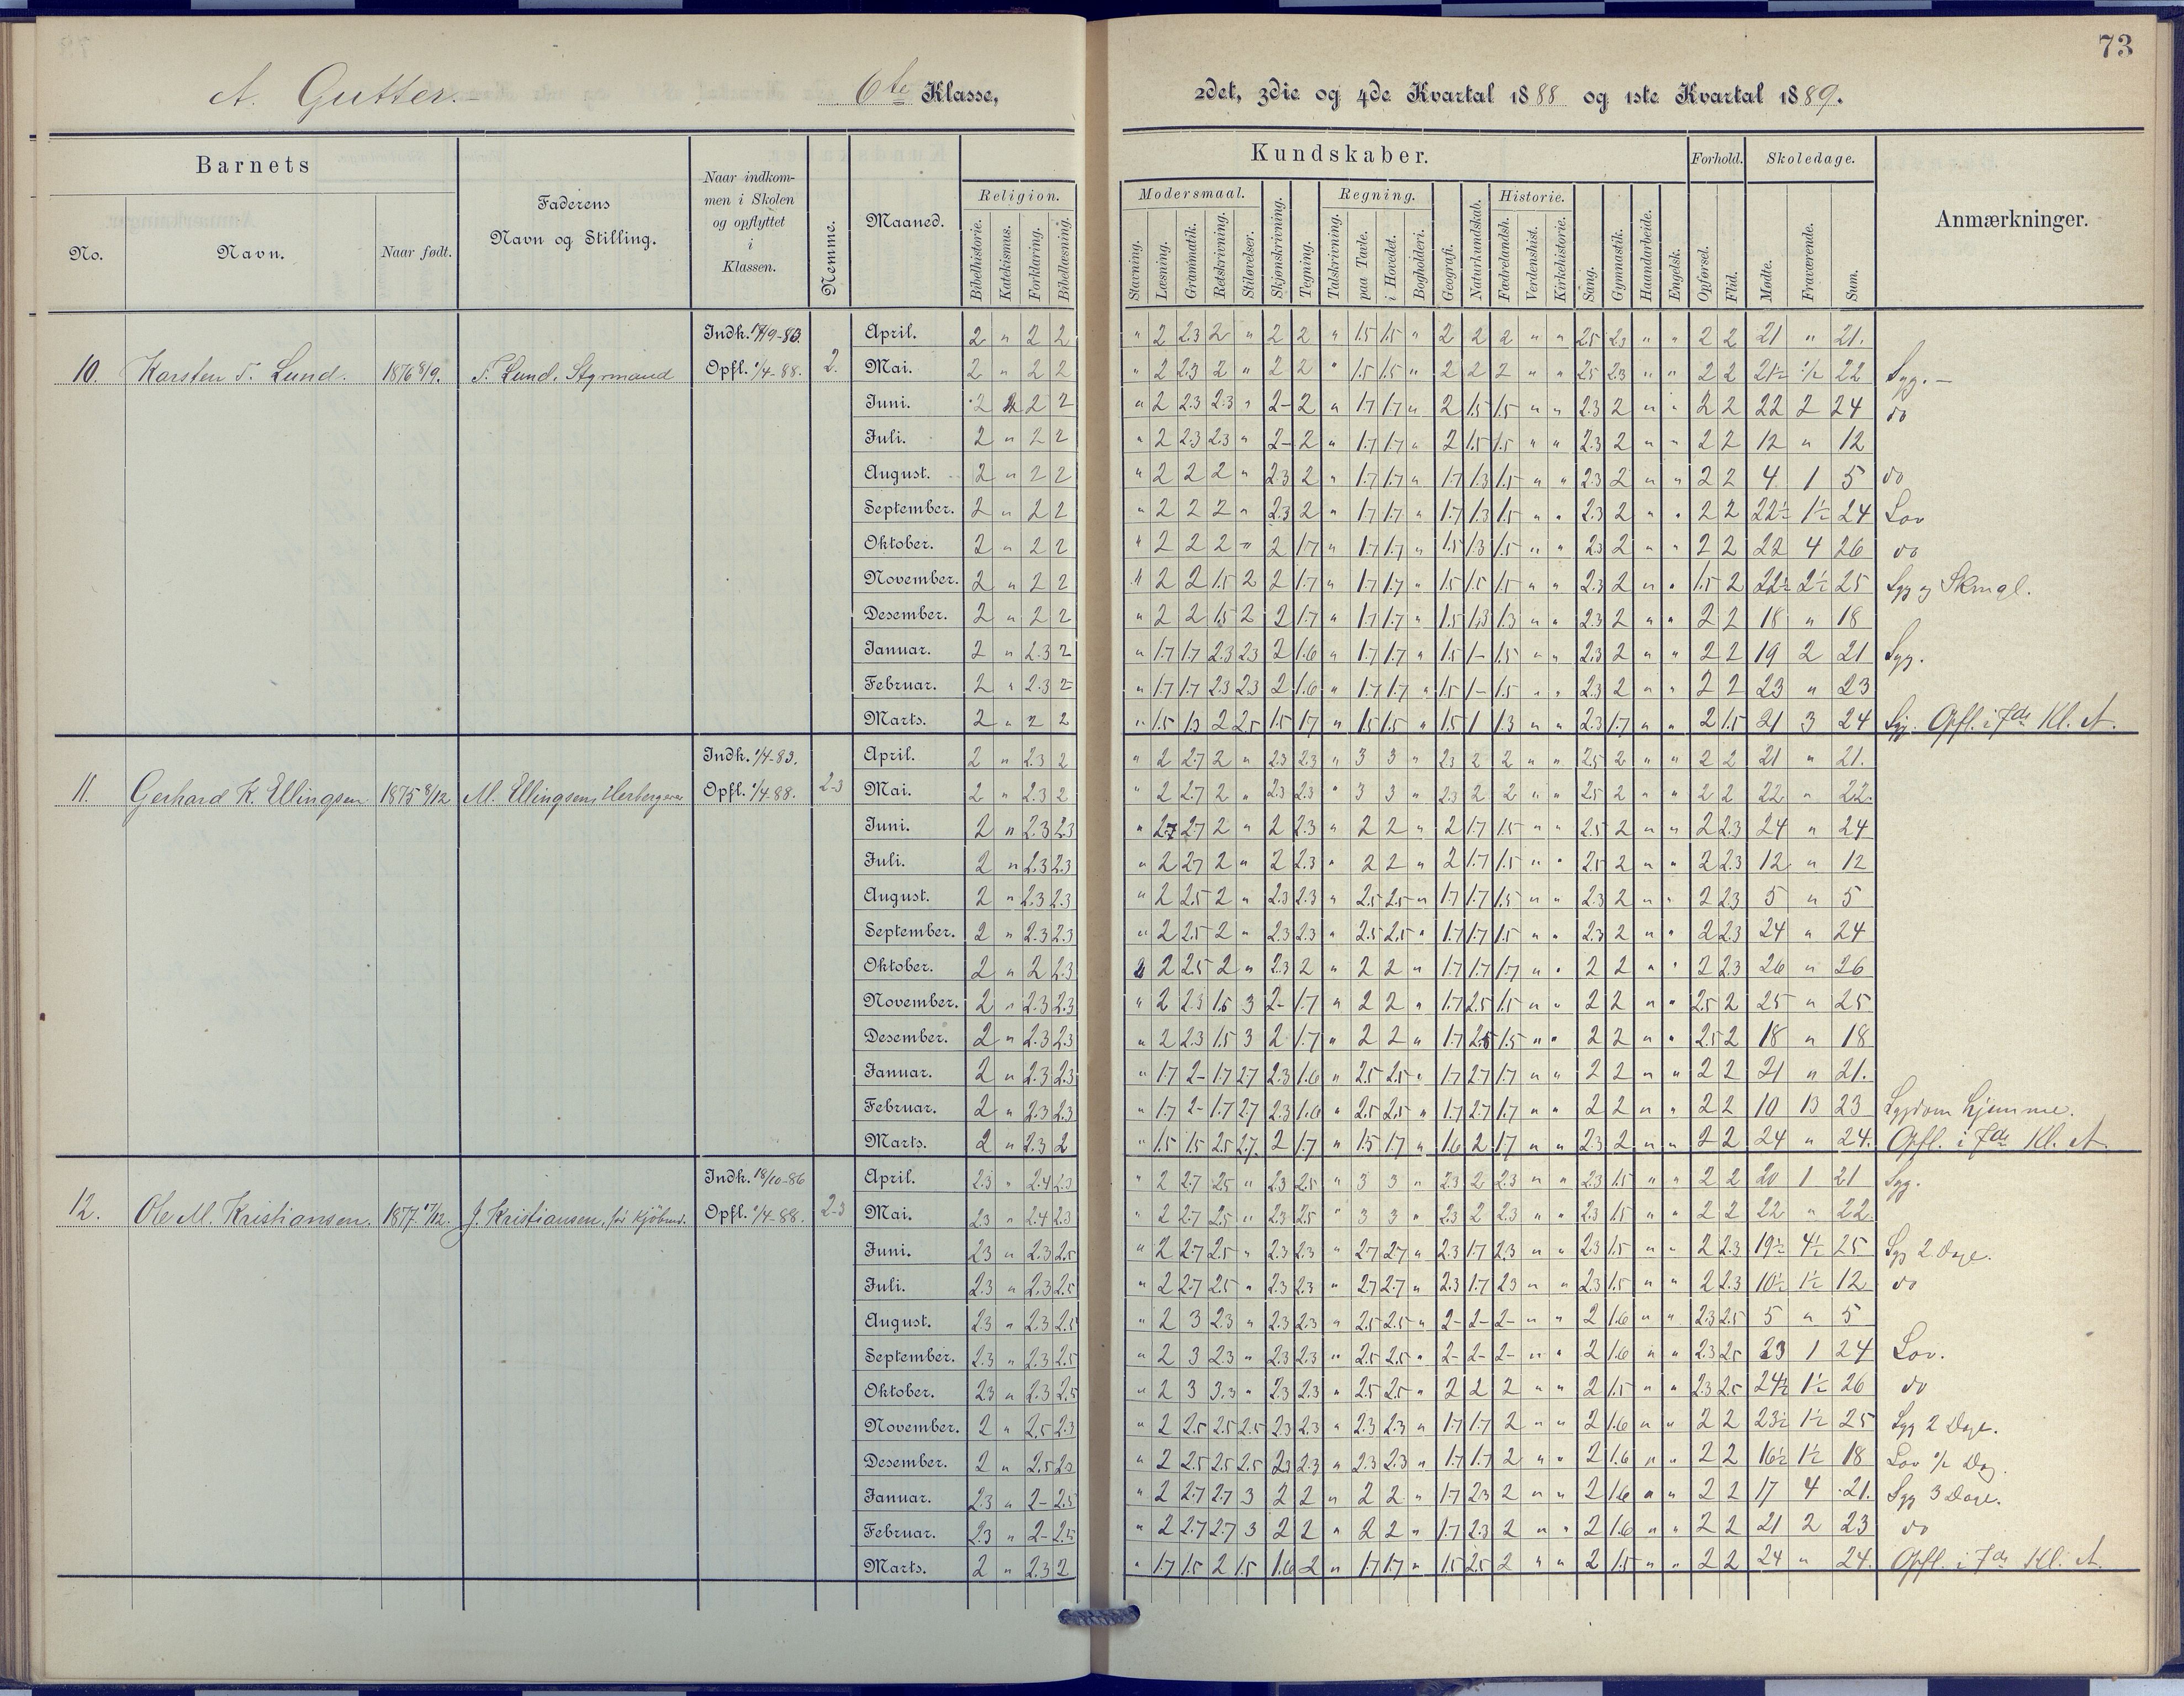 73
A. Gutter.
6te Klasse,
2det, 3die og 4de Kvartal 1888 og 1ste Kvartal 1889.
Barnets
No.
Navn.
Naar født.
Faderens
Navn og Stilling.
Naar indkom-
men i Skolen
og opflyttet
i
Klassen.
Nemme.
Maaned.
Kundskaber.
Religion.
Bibelhistorie. Katekismus. Forklaring. Bibellæsning.
Modersmaal.
Stavning. Læsning. Grammatik. Retskrivning. Stiløvelser.
Skjønskrivning. Tegning.
Regning.
Talskrivning. paa Tavle. i Hovedet. Bogholderi.
Geografi. Naturkundskab.
Historie.
Fædrelandsh. Verdenshist. Kirkehistorie.
Sang. Gymnastik. Haandarbeide. Engelsk.
Forhold.
Opførsel. Flid.
Skoledage.
Mødte. Fraværende. Sum.
Anmærkninger.
10. Karsten T. Lund. 1876 T. Lund, Styrmand Indk. Opfl. 1/4-88. 2.
April. 2 " 2 2 " 2 2.3 2 " 2 2 " 1.5 1.5 " 2 2 2 " " 2.5 2.3 " " 2 2 21 " 21.
Mai. 2 " 2 2 " 2 2.3 2 " 2 2 " 1.5 1.5 " 2 2 2 " " 2.5 2.3 " " 2 2 21½ ½ 22 Syg. —
Juni. 2 2 2 " 2 2.3 2.3 " 2- 2 " 1.7 1.7 " 2 1.5 1.5 " " 2.3 2 " " 2 2 22 2 24 do
Juli. 2 " 2 2 " 2 2.3 2.3 " 2- 2 " 1.7 1.7 " 2 1.5 1.5 " " 2.3 2 " " 2 2 12 " 12
August. 2 " 2 2 " 2 2 2 " 2.3 2 " 1.7 1.7 " 1.7 1.3 1.5 " " 2.3 2 " " 2 2 4 1 5 do
September. 2 " 2 2 " 2 2 2 " 2.3 2 " 1.7 1.7 " 1.7 1.3 1.5 " " 2.3 2 " " 2 2 22½ 1½ 24 Lov
Oktober. 2 " 2 2 " 2 2 2 " 2 1.7 " 1.7 1.7 " 1.5 1.3 1.5 " " 2.3 2 " " 2 2 22 4 26 do
November. 2 " 2 2 " 2 2 1.5 2 2 1.7 " 1.7 1.7 " 1.5 1.5 1.5 " " 2.3 2 " " 1.5 2 22½ 2½ 25 Syg og Skmgl.
Desember. 2 " 2 2 " 2 2 1.5 2 2 1.7 " 1.7 1.7 " 1.5 1.3 1.3 " " 2.3 2 " " 2 2 18 " 18
Januar. 2 " 2.3 2 " 1.7 1.7 2.3 2.3 2 1.6 " 1.7 1.7 " 1.5 1- 1.5 " " 2.3 2 " " 2 2 19 2 21 Syg.
Februar. 2 " 2.3 2 " 1.7 1.7 2.3 2.3 2 1.6 " 1.7 1.7 " 1.5 1- 1.5 " " 2.3 2 " " 2 2 23 " 23
Marts. 2 " 2 2 " 1.5 1.3 2 2.5 1.5 1.7 " 1.5 1.5 " 1.5 1 1.3 " " 2.3 1.7 " " 2 1.5 21 3 24 Syg. Opfl. i 7de Kl. A.
11. Gerhard K. Ellingsen 1875 8/12 M. Ellingsen, Herbergerer Indk. 1/4-83. Opfl. 1/4-88. 2.3
April. 2 " 2.3 2 " 2 2.7 2 " 2.3 2.3 " 3 3 " 2.3 2 2 " " 2.5 2 " " 2 2 21 " 21.
Mai. 2 " 2.3 2 " 2 2.7 2 " 2.3 2.3 " 3 3 " 2.3 2 2 " " 2.5 2 " " 2 2 22 " 22.
Juni. 2 " 2.3 2.3 " 2.7 2.7 2 " 2 2.3 " 2 2 " 2 1.7 1.5 " " 2.5 2 " " 2 2.3 24 " 24
Juli. 2 " 2.3 2.3 " 2 2.7 2 " 2 2.3 " 2 2 " 2 1.7 1.5 " " 2.5 2 " " 2 2.3 12 " 12
August. 2 " 2.3 2.3 " 2 2.5 2 " 2.3 2.3 " 2.5 2.5 " 1.7 1.7 1.5 " " 2.3 2 " " 2 2.3 5 " 5
September. 2 " 2.3 2.3 " 2 2.5 2 " 2.3 2.3 " 2.5 2.5 " 1.7 1.7 1.5 " " 2.3 2 " " 2 2.3 24 " 24
Oktober. 2 " 2 2.3 2 2.5 2 " 2.3 2 " 2 2 " 1.7 1.7 1.7 " " 2 2 " " 2 2.3 26 " 26
November. 2 " 2.3 2.3 " 2 2.3 1.5 3 2- 1.7 " 2 2 " 1.7 2.5 1.5 " " 2 2 " " 2.5 2 25 " 25
Desember. 2 " 2.3 2.3 " 2 2.3 1.5 3 2 1.7 " 2 2 " 1.7 2.5 1.5 " " 2 2 " " 2.5 2 18 " 18
Januar. 2 " 2.3 2.3 " 1.7 2- 1.7 2.7 2.3 1.6 " 2.5 2.5 " 1.7 2.7 1.7 " " 2 2 " " 2 2 21 " 21.
Februar. 2 " 2.3 2.3 " 1.7 2- 1.7 2.7 2.3 1.6 " 2.5 2.5 " 1.7 2.7 1.7 " " 2 2 " " 2 2 10 13 23 Sygdom hjemme.
Marts. 2 " 2.3 2 " 1.5 1.5 2.5 2.7 2 1.7 " 1.5 1.7 " 1.6 2 1.7 " " 2.3 2 " " 2 2 24 " 24. Opfl. i 7de Kl. A
12. Ole M. Kristiansen. 1877. 17/12. J. Kristiansen, før Kjøbmd. Indk. 18/10-86 Opfl. 1/4-88. 2.3
April. 2.3 " 2.4 2.3 " 2 2.7 2.5 " 2.3 2.5 " 3 3 " 2.3 2 2.3 " " 2.3 1.5 " " 2 2 20 1 21 Syg.
Mai. 2.3 " 2.4 2.3 " 2 2.7 2.5 " 2.3 2.5 " 3 3 " 2.3 2 2.3 " " 2.3 1.5 " " 2 2 22 " 22.
Juni. 2.3 " 2.3 2.5 " 2 2.7 2.5 " 2.3 2.3 " 2.7 2.7 " 2.3 1.7 2.3 " " 2.3 1.5 " " 2 2.3 19½ 4½ 25 Syg 2 Dage.
Juli. 2.3 " 2.3 2.5 " 2 2.7 2.5 " 2.3 2.3 " 2.7 2.7 " 2.3 1.7 2.3 " " 2.3 1.5 " " 2 2.3 10½ 1½ 12 do
August. 2.3 " 2.3 2.5 " 2 3 2.3 " 2.3 2.3 " 2.5 2.5 " 2- 2- 2- " " 2 1.6 " " 2.3 2.5 5 " 5
September. 2.3 " 2.3 2.5 " 2 3 2.3 " 2.3 2.3 " 2.5 2.5 " 2- 2- 2- " " 2 1.6 " " 2.3 2.5 23 1 24 Lov.
Oktober. 2.3 " 2.3 2.5 " 2 3 3.3 " 2.3 2.3 " 2.5 2.5 " 2 2 2 " " 2 1.5 " " 2.3 2.5 24½ 1½ 26 do
November. 2 " 2.5 2.3 " 2 2.5 2.5 2.5 2.3 2.3 " 2.3 2.3 " 1.7 1.7 2 " " 2 1.6 " " 2 2 23½ 1½ 25 Syg 2 Dage.
Desember. 2 " 2.5 2.3 " 2 2.5 2.5 2.5 2.3 2.3 " 2.3 2.3 " 1.7 1.7 2 " " 2 1.6 " " 2 2 16½ 1½ 18 Lov ½ Dag.
Januar. 2.3 " 2- 2.5 " 2 2.7 2.7 3 2 2 " 2 2 " 1.7 2.3 2 " " 2 1.6 " " 2 2 17 4 21. Syg 3 Dage.
Februar. 2.3 " 2- 2.5 " 2 2.7 2.7 3 2 2 " 2 2 " 1.7 2.3 2 " " 2 1.6 " " 2 2 21 2 23 do
Marts. 2 " 2.3 2 " 1.7 1.5 2 1.5 1.6 2 " 1.7 1.7 " 1.5 2.5 2 " " 2 1.5 " " 2 2 24 " 24. Opfl. i 7de Kl. A.